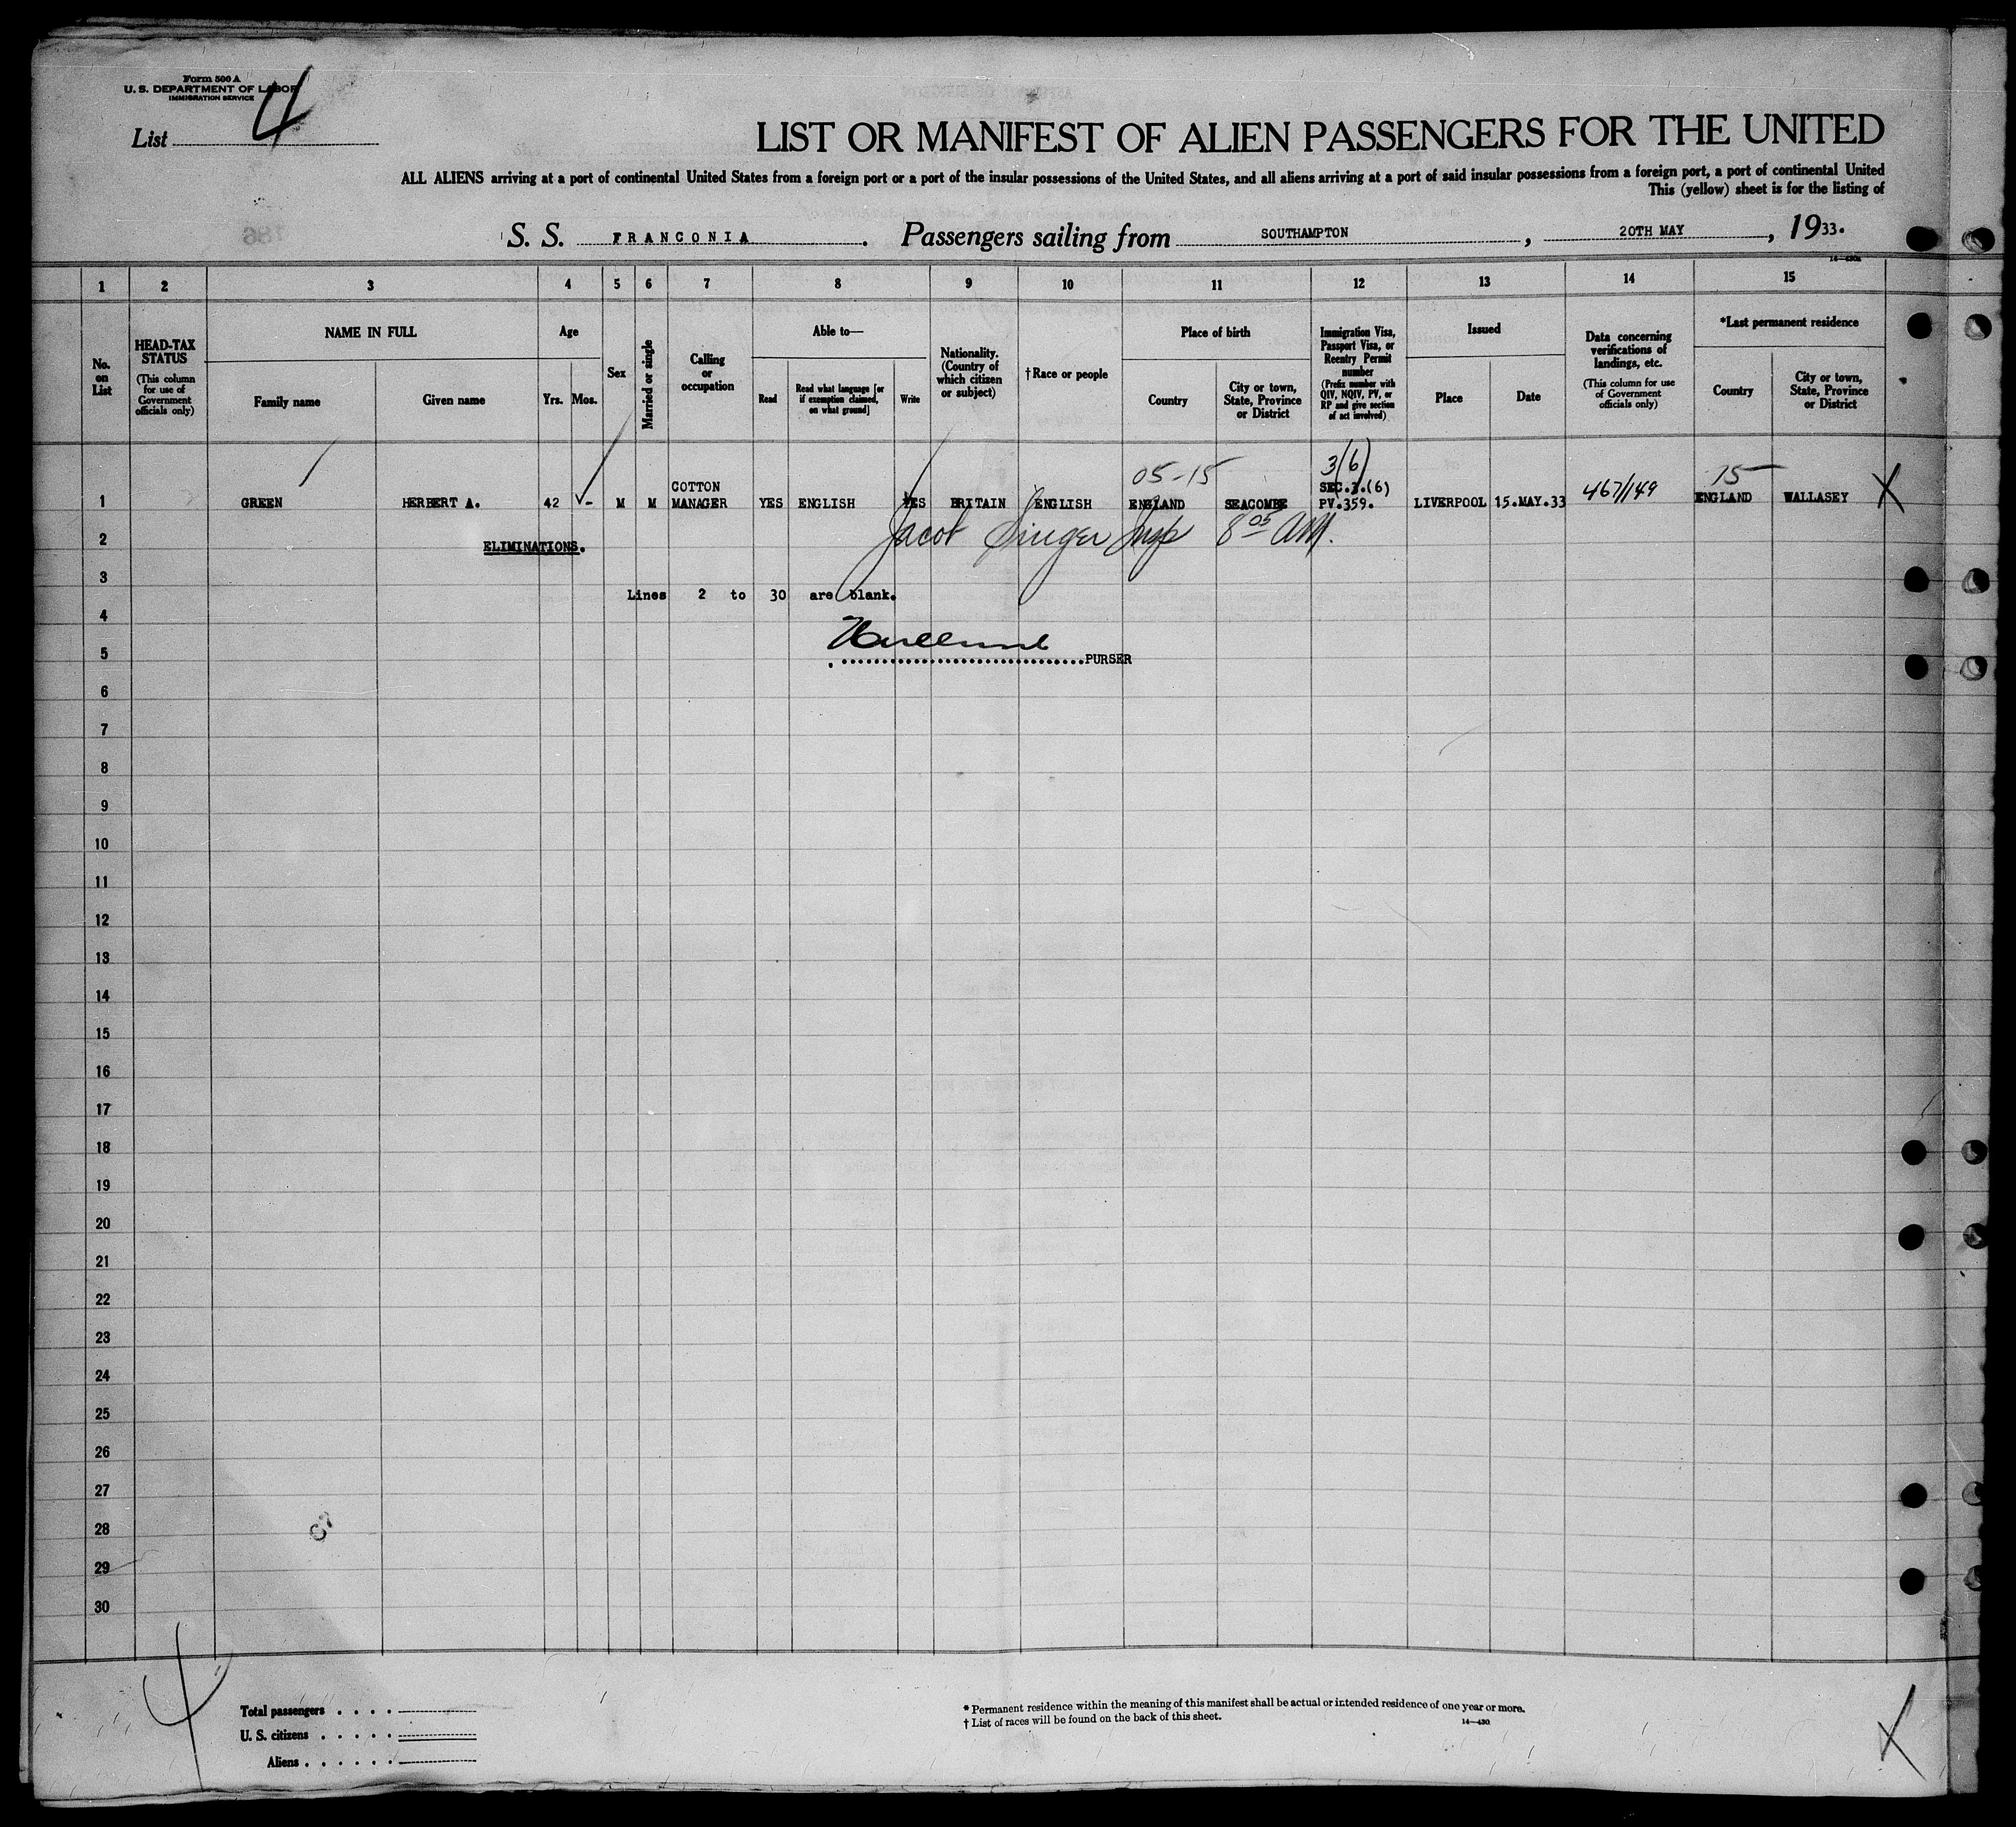 Form 500 A
U. S. DEPARTMENT OF LABOR
IMMIGRATION SERVICE
List 4
LIST OR MANIFEST OF ALIEN PASSENGERS FOR THE UNITED
ALL ALIENS arriving at a port of continental United States from a foreign port or a port of the insular possessions of the United States, and all aliens arriving at a port of said insular possessions from a foreign port, a port of continental United
This (yellow) sheet is for the listing of
S. S. FRANCONIA. Passengers sailing from SOUTHAMPTON, 20TH MAY, 1933.
1 2 3 4 5 6 7 8 9 10 11 12 13 14 15
No. on List
HEAD-TAX STATUS
(This column for use of Government officials only)
NAME IN FULL
Family name Given name
Age
Yrs. Mos.
Sex
Married or single
Calling or occupation
Able to—
Read
Read what language [or if exemption claimed, on what ground]
Write
Nationality. (Country of which citizen or subject)
†Race or people
Place of birth
Country
City or town, State, Province or District
Immigration Visa, Passport Visa, or Reentry Permit number
(Prefix number with QIV, NQIV, PV, or RP and give section of act involved)
Issued
Place Date
Data concerning verifications of landings, etc.
(This column for use of Government officials only)
*Last permanent residence
Country
City or town, State, Province or District
05-15 3(6) 15
COTTON SEC.3.(6)
1 GREEN HERBERT A. 42 - M M MANAGER YES ENGLISH YES BRITAIN ENGLISH ENGLAND SEACOMBE PV.359. LIVERPOOL 15.MAY.33 467/149 ENGLAND WALLASEY X
2 ELIMINATIONS. Jacob Singer Insp 8 05 AM.
3 Lines 2 to 30 are blank.
4
5 PURSER
6
7
8
9
10
11
12
13
14
15
16
17
18
19
20
21
22
23
24
25
26
27
28
29
30
Total passengers
U. S. citizens
Aliens
* Permanent residence within the meaning of this manifest shall be actual or intended residence of one year or more.
† List of races will be found on the back of this sheet.
14—430
X